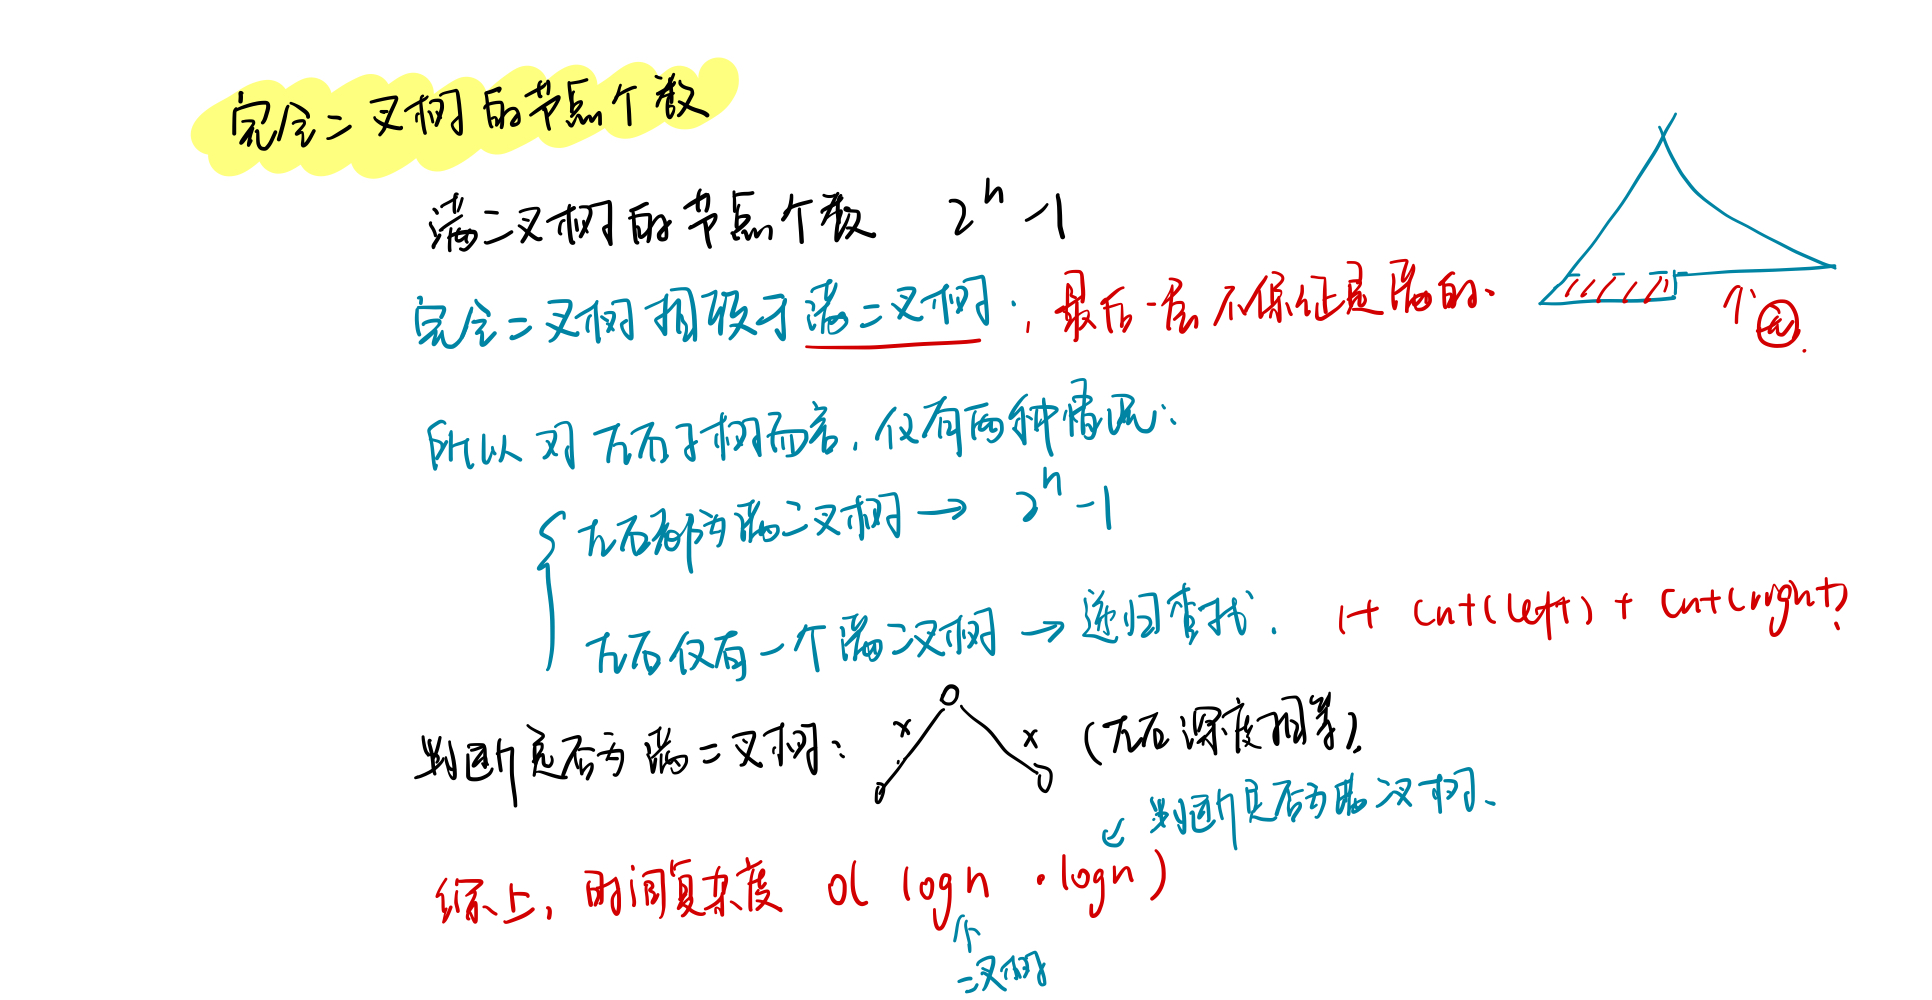 完全二叉树的节点个数
满二叉树的节点个数 2^h -1
完全二叉树相较于满二叉树, 最后一层不保证是满的.
个
所以对左右子树而言, 仅有两种情况:
左右都为满二叉树 → 2^h -1
左右仅有一个满二叉树 → 递归查找. 1+ cnt(left) + cnt(right)
判断是否为满二叉树: x x (左右深度相等).
↙ 判断是否为满二叉树.
综上, 时间复杂度 O( logn · logn )
↑
二叉树